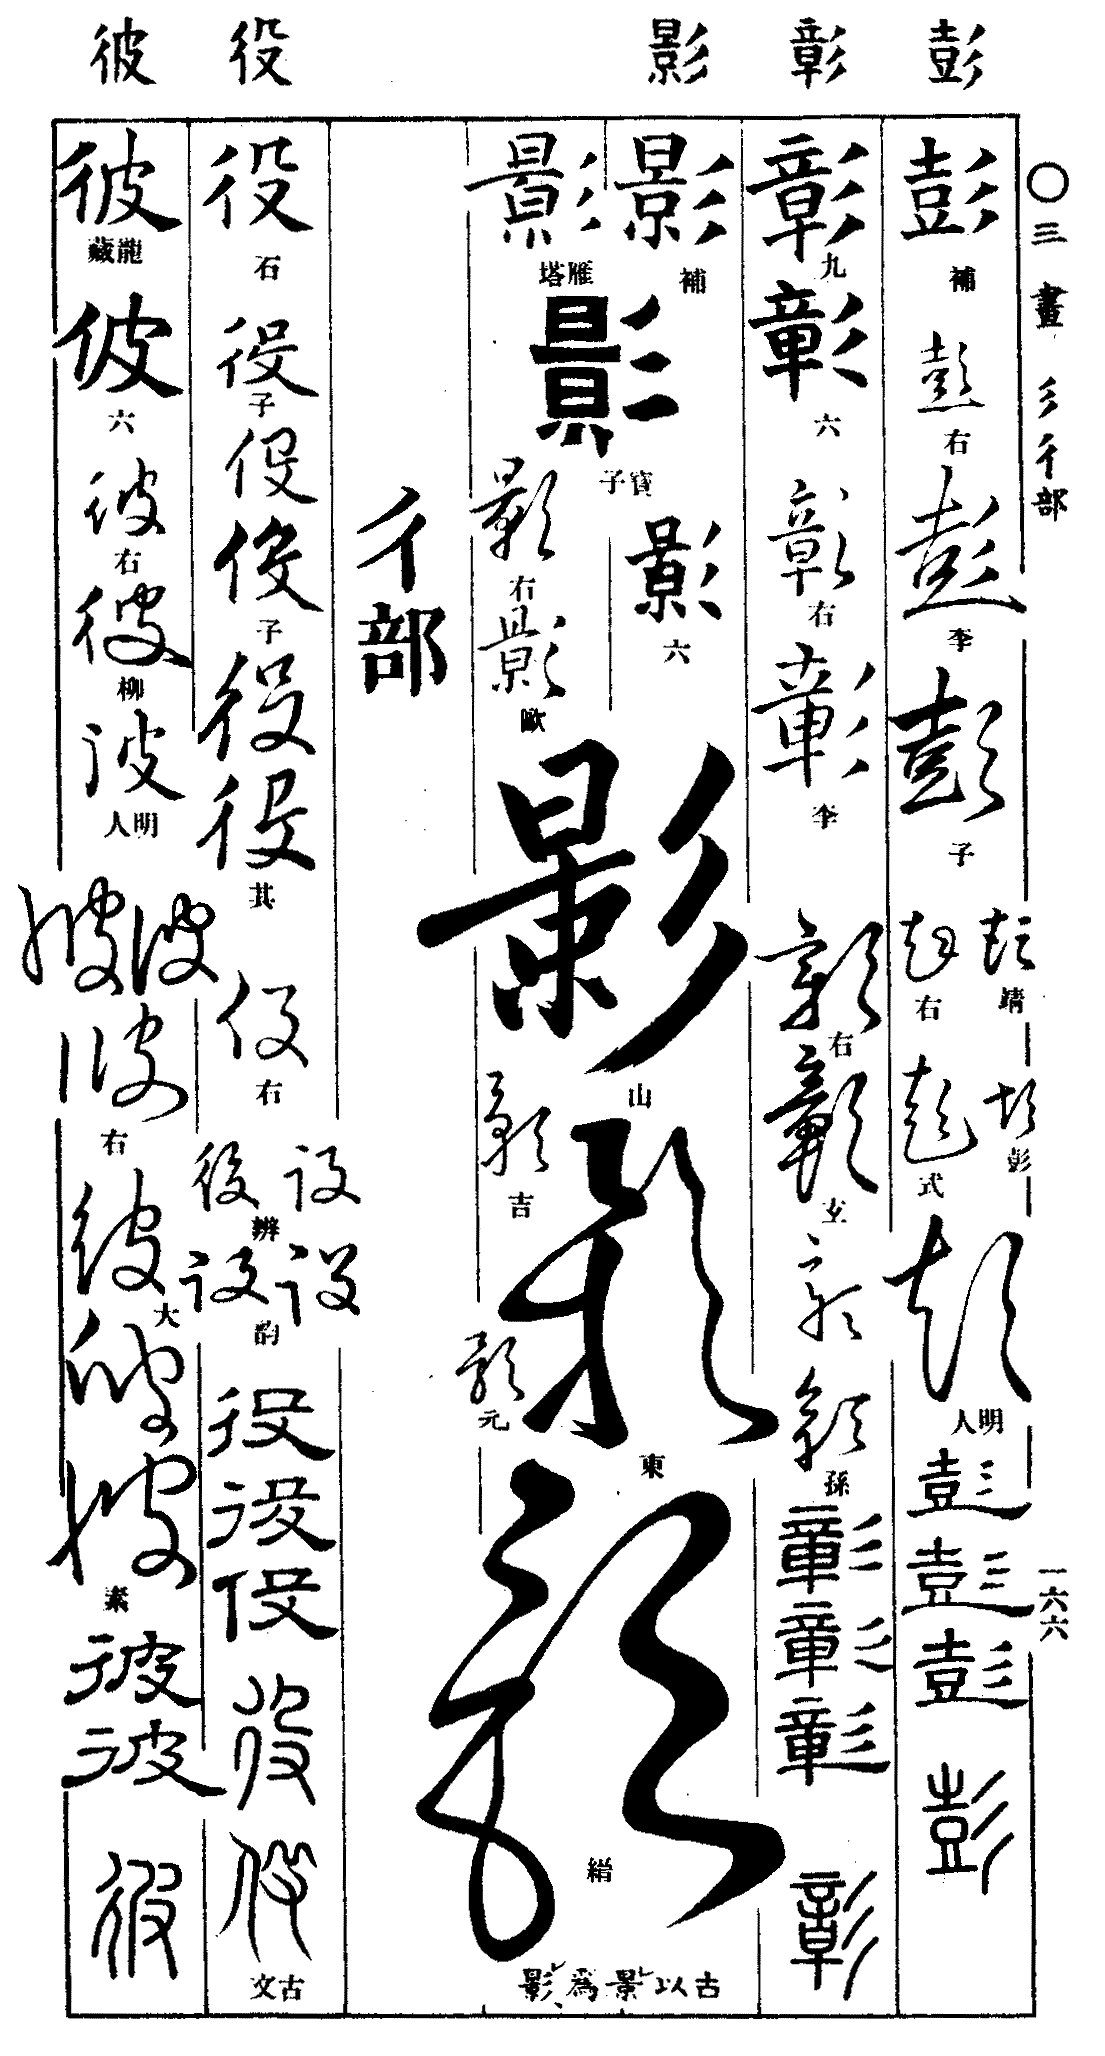 彭 彰 影 役 彼
〇三畫 彡彳部
一六六
彭 補
彭 右
彭 李
彭 子
彭 靖
彭 右
彭 彭
彭 式
彭 明人
彭
彭
彭
彭
彰 九
彰 六
彰 右
彰 李
彰 右
彰 玄
彰
彰 孫
彰
彰
彰
彰
影 補
影 雁塔
影 寶子
影 六
影 右
影 歐
影 山
影 吉
影 東
影 元
影 絹
古以景爲影
彳部
役 石
役 子
役
役 子
役
役 其
役 右
役 役 辨
役 役 韵
役
役
役
役
役 古文
彼 龍藏
彼 六
彼 右
彼 柳
彼 明人
彼 彼
彼 右
彼 大
彼
彼 素
彼
彼
彼